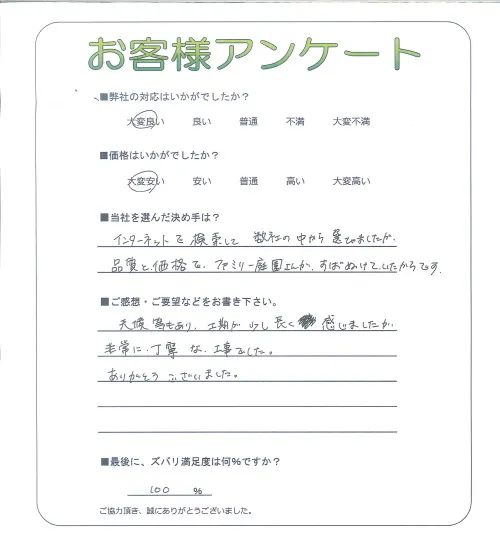 お客様アンケート
■弊社の対応はいかがでしたか？
大変良い 良い 普通 不満 大変不満
■価格はいかがでしたか？
大変安い 安い 普通 高い 大変高い
■当社を選んだ決め手は？
インターネットで検索して 数社の中から選びましたが、
品質と価格で、ファミリー庭園さんが、ずばぬけていたからです
■ご感想・ご要望などをお書き下さい。
天候等もあり、工期が少し長く感じましたが、
非常に丁寧な工事でした。
ありがとうございました。
■最後に、ズバリ満足度は何％ですか？
100 ％
ご協力頂き、誠にありがとうございました。